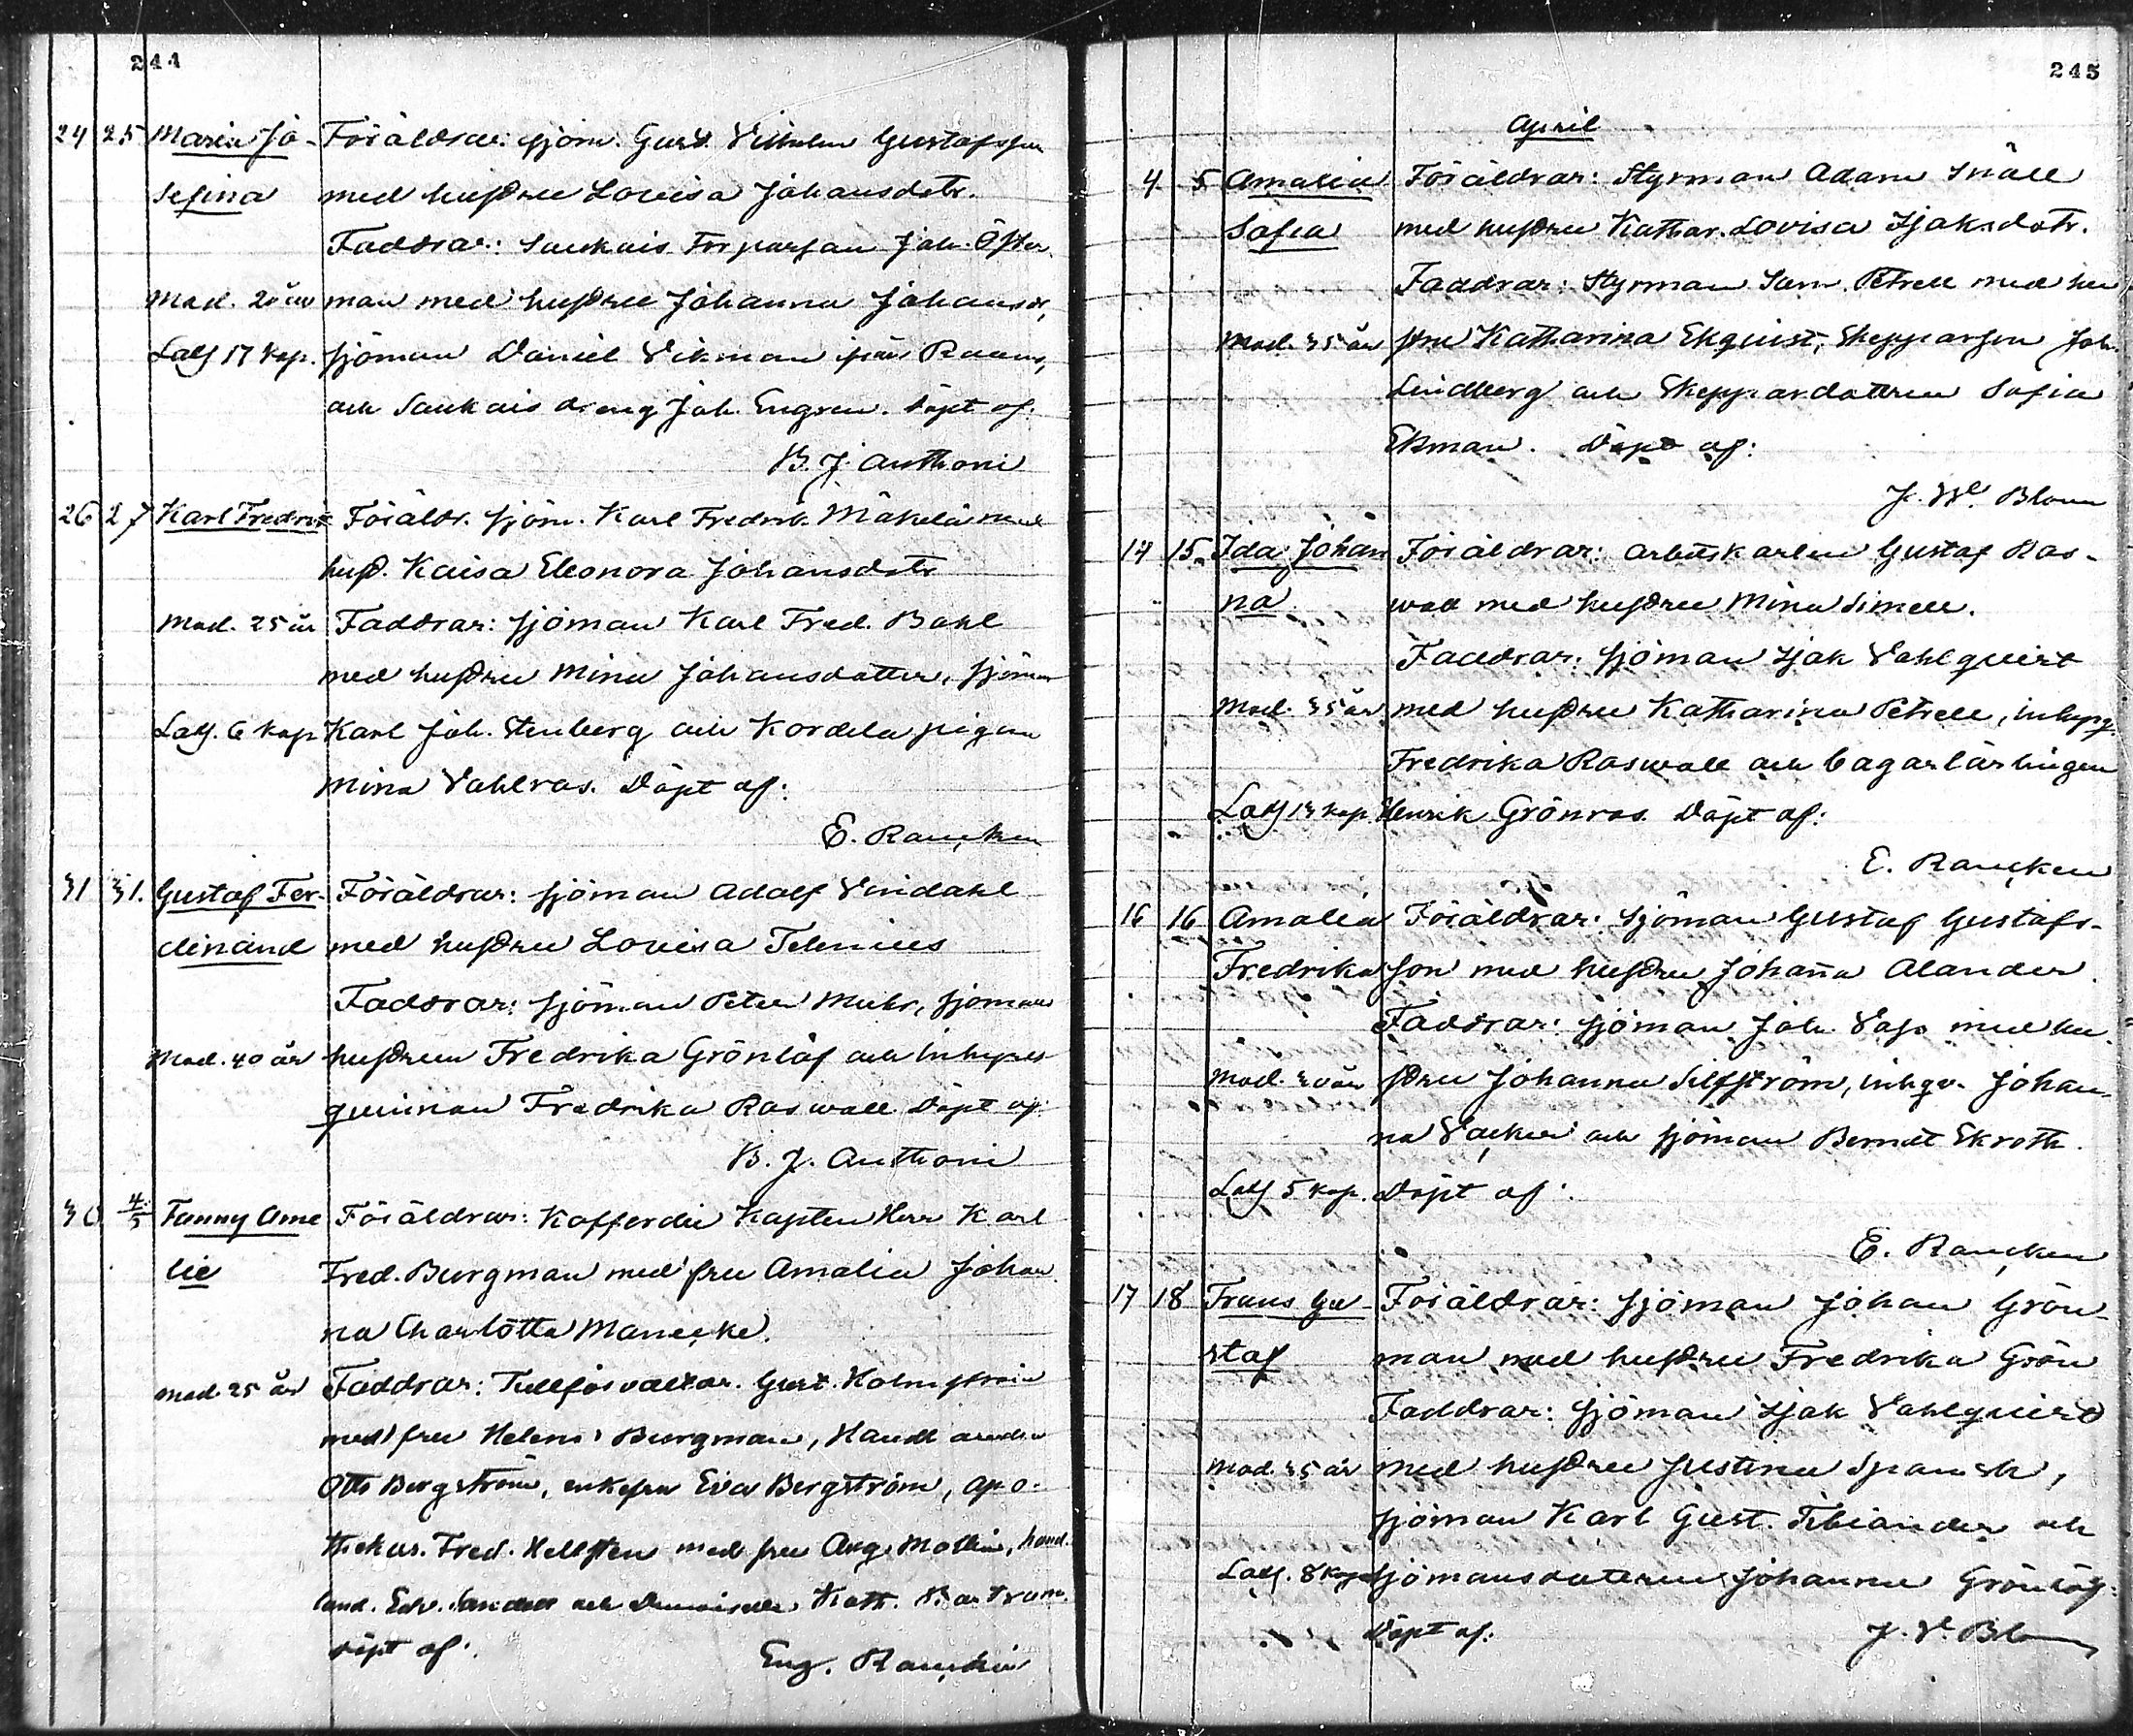 244
24 25 Maria Jo- Föräldrar: sjöm. Gust. Vilhelm Gustafsson
sefina med hustru Lovisa Johansdotr.
Faddrar: Saukais Torparson Joh. Öster
Mod. 20 år man med hustru Johanna Johansdr,
Lösg 17 kop. sjöman Daniel Vikman ifrån Raumo,
och Saukais dreng Joh. Engren. Döpt af.
B. J. Anthoni
26 27 Karl Fredrik Föräldr. sjöm. Karl Fredrik Mäkelä med
hust. Kaisa Eleonora Johansdotr
Mod. 25 år Faddrar: sjöman Karl Fred. Dahl
med hustru Mina Johansdotter, sjöman
6 kop Karl Joh. Stenberg och Kordela pigan
Mina Vahlros. Döpt af:
E. Rancken
31 31. Gustaf Fer- Föräldrar: sjöman Adolf Vindahl
dinand med hustru Lovisa Telenius
Faddrar: sjöman Peter Muhr, sjömans
Mod. 40 år hustrun Fredrika Grönlöf och inhyses
qvinnan Fredrika Roswall Döpt af:
B. J. Anthoni
30 4/5 Fanny Ame Föräldrar: Kofferdie Kapten Herr Karl
lie Fred. Burgman med fru Amalia Johan
na Charlotta Manecke.
Mod. 25 år Faddrar: Tullförvaltar. Gust. Holmström
med fru Helena Burgman, Handlanden
Otto Bergström, enkefru Eva Bergström, apo-
thekar. Fred. Hellsten med fru Aug. Mollin, hand-
land. Edv. Sandell och Demoiselle Kath. Bartram.
Döpt af:
Eug. Rancken
245
April
4 5 Amalia Föräldrar: Styrman Adam Snäll
Sofia med hustru Kathar. Lovisa Isaksdotr.
Faddrar: Styrman Sam. Petrell med hu
Mod. 35 år stru Katharina Ekquist, Skepparson Joh.
Lindberg och Skeppardottren Sofia
Ekman. Döpt af:
J. W. Blom
14 15. Ida Johan Föräldrar: arbetskarlen Gustaf Ros-
na wall med hustru Mina Simell.
Faddrar: sjöman Isak Vahlquist
Mod. 35 år med hustru Katharina Petrell, inhysq.
Fredrika Roswall och bagarlärlingen
13 kop. Henrik Grönros Döpt af:
E. Rancken
16 16 Amalia Föräldrar: sjöman Gustaf Gustafs-
Fredrika son med hustru Johanna Alander.
Faddrar: sjöman Joh. Vass med hu-
Mod. 30 år stru Johanna Silfström, inhqv. Johan-
na Vacker och sjöman Berndt Ekroth.
5 kop. Döpt af:
E. Rancken
17 18 Frans Gu- Föräldrar: sjöman Johan Grön-
staf man med hustru Fredrika Grön
Faddrar: sjöman Isak Vahlquist
Mod. 35 år med hustru Justina Spansk,
sjöman Karl Gust. Fabiander och
8 kop sjömansdotren Johanna Grönlöf.
Döpt af: J. V. Blom